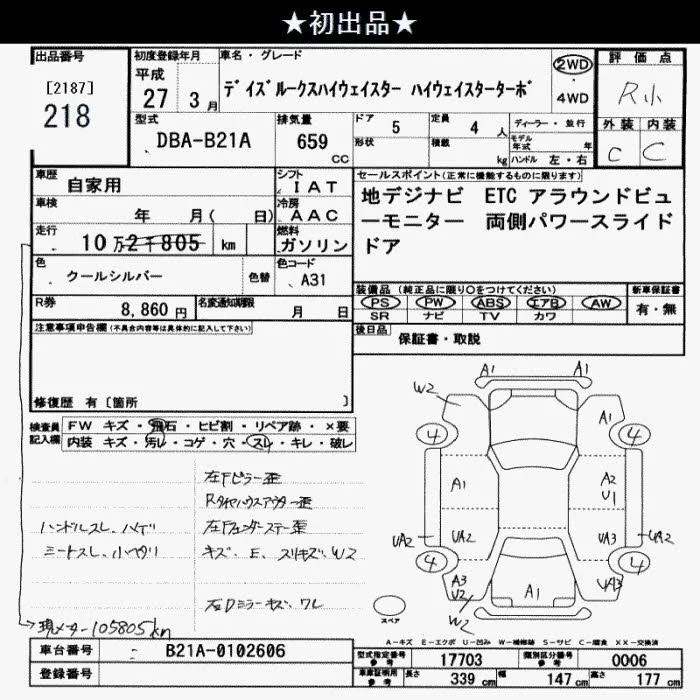 ★初出品★
出品番号
[2187]
218
初度登録年月
平成
27 3月
車名・グレード
デイズルークスハイウェイスター ハイウェイスターターボ
2WD
・
4WD
評価点
R小
外装 内装
C C
型式
DBA-B21A
排気量
659 CC
ドア 5
定員 4人
形状
積載 kg
ディーラー・並行
モデル年式 年
ハンドル 左・右
車歴
自家用
シフト
IAT
車検
年 月( 日)
冷房
AAC
走行
10万2千805 km
燃料
ガソリン
色
クールシルバー
色替
色コード
A31
R券
8,860円
名変通知期限
月 日
セールスポイント(正常に機能するものに限ります)
地デジナビ ETC アラウンドビュ
ーモニター 両側パワースライド
ドア
装備品(純正品に限り○をつけてください)
新車保証書
PS PW ABS エアB AW
有・無
SR ナビ TV カワ
後日品
保証書・取説
注意事項申告欄(不具合内容等は具体的に記入して下さい)
修復歴 有〔箇所 〕
検査員記入欄
FW キズ・飛石・ヒビ割・リペア跡・×要
内装 キズ・汚レ・コゲ・穴・スレ・キレ・破レ
左Fピラー歪
Rタイヤハウスアウター歪
ハンドルスレ、ハゲ
左Fフェンダーステー歪
シートスレ、小ヘタリ
キズ、E、スリキズ、W2
左Dミラーキズ、ワレ
現メーター105805km
A1 A1
W2
4 A1 4
A1 A2
U1
UA2 UA2 UA3 UA2
4 4
A3
V2 A1 UA3
W2
スペア
A-キズ E-エクボ U-凹み W-補修跡 S-サビ C-腐食 XX-交換済
車台番号
B21A-0102606
登録番号
型式指定番号
参考
17703
類別区分番号
参考
0006
車庫証明用
参考
長さ 339 cm
幅 147 cm
高さ 177 cm